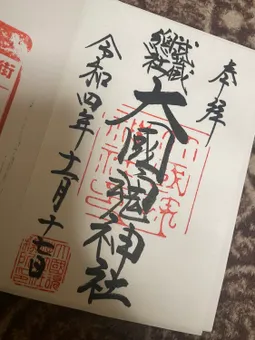 奉拝
武蔵總社
大國魂神社
令和四年十一月十七日